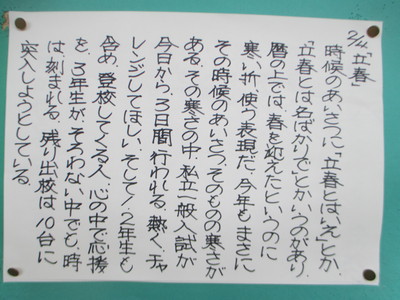 2/4「立春」
時候のあいさつに「立春とはいえ」とか、
「立春とは名ばかりで」とかいうのがあり、
暦の上では、春を迎えたというのに
寒い折、使う表現だ。今年もまさに
その時候のあいさつ、そのものの寒さが
ある。その寒さの中、私立一般入試が
今日から、3日間行われる。熱く、チャ
レンジしてほしい。そして1・2年生も
含め、登校してくる人、心の中で応援
を。3年生が、そろわない中でも、時
は、刻まれる。残り出校は10台に
突入しようとしている。